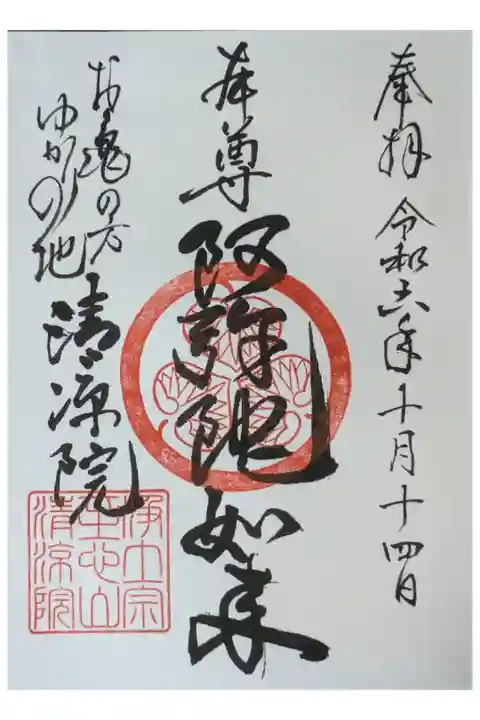 奉拝 令和六年十月十四日
本尊 阿弥陀如来
お亀の方
ゆかりの地
清凉院
浄土宗
清凉院